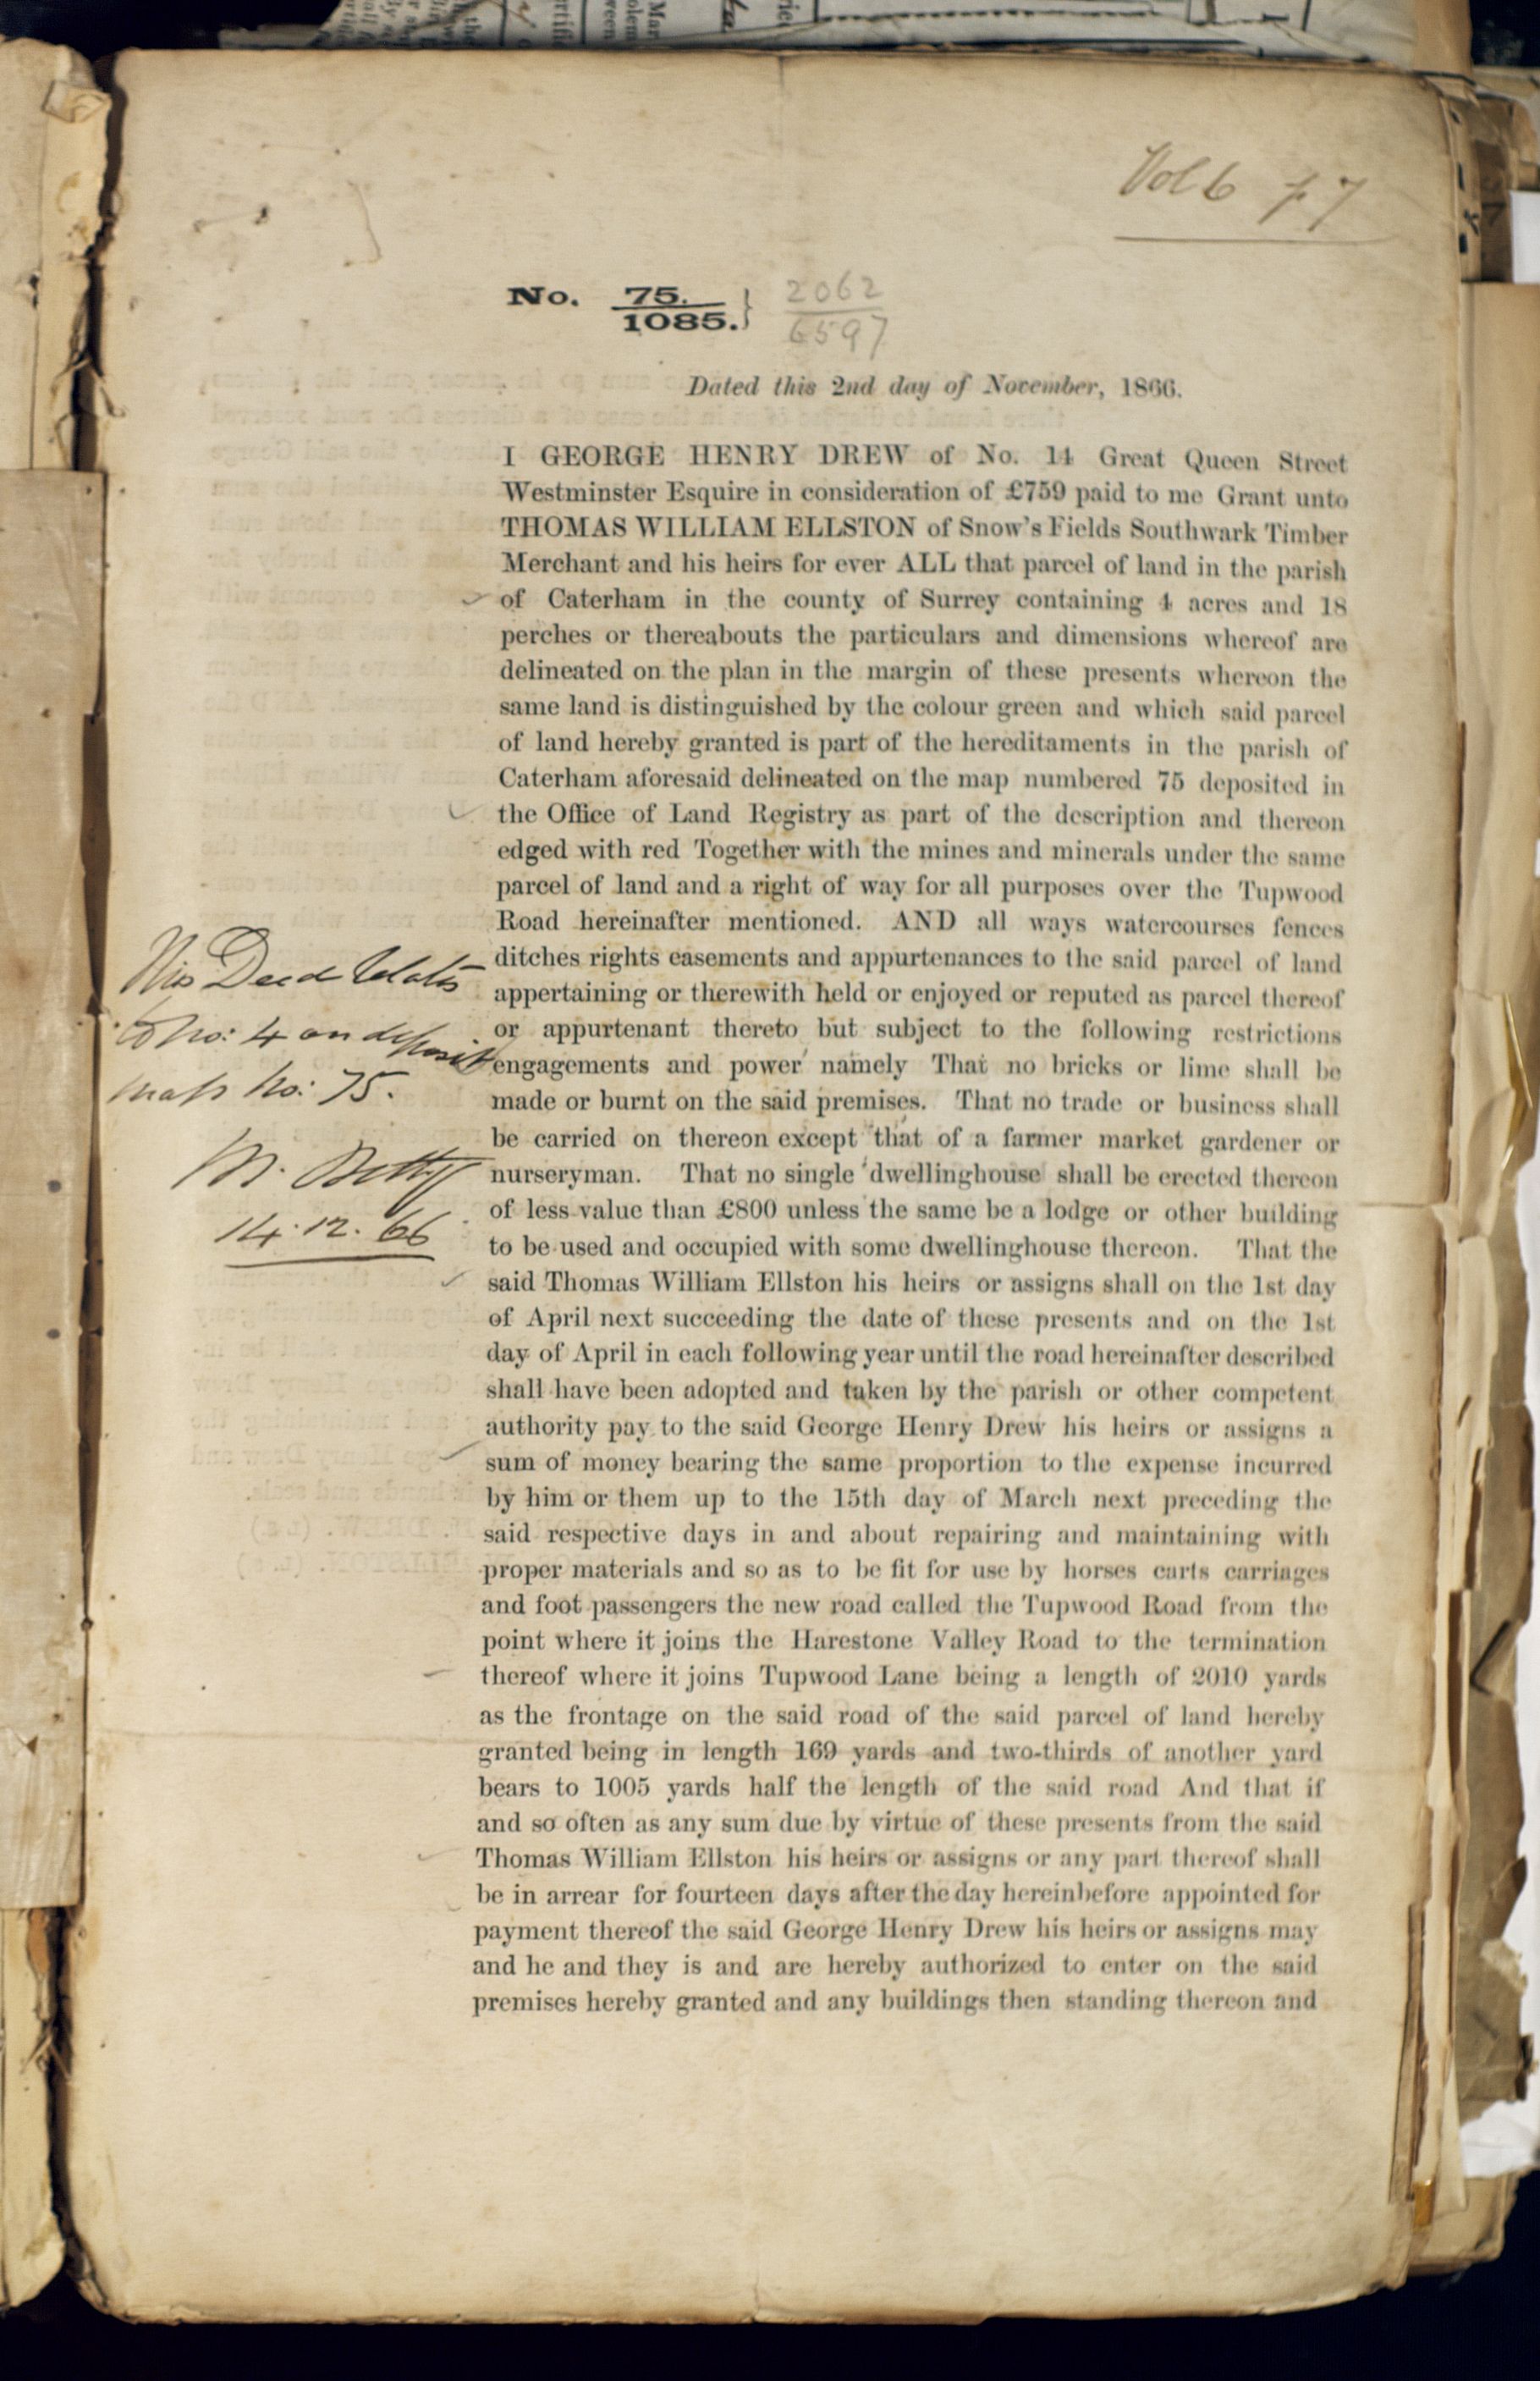 Vol 6 p 7
No. 75. } 2062
1085. 6597
Dated this 2nd day of November, 1866.
I GEORGE HENRY DREW of No. 14 Great Queen Street
Westminster Esquire in consideration of £759 paid to me Grant unto
THOMAS WILLIAM ELLSTON of Snow's Fields Southwark Timber
Merchant and his heirs for ever ALL that parcel of land in the parish
of Caterham in the county of Surrey containing 4 acres and 18
perches or thereabouts the particulars and dimensions whereof are
delineated on the plan in the margin of these presents whereon the
same land is distinguished by the colour green and which said parcel
of land hereby granted is part of the hereditaments in the parish of
Caterham aforesaid delineated on the map numbered 75 deposited in
the Office of Land Registry as part of the description and thereon
edged with red Together with the mines and minerals under the same
parcel of land and a right of way for all purposes over the Tupwood
Road hereinafter mentioned. AND all ways watercourses fences
ditches rights easements and appurtenances to the said parcel of land
appertaining or therewith held or enjoyed or reputed as parcel thereof
or appurtenant thereto but subject to the following restrictions
engagements and power namely That no bricks or lime shall be
made or burnt on the said premises. That no trade or business shall
be carried on thereon except that of a farmer market gardener or
nurseryman. That no single dwellinghouse shall be erected thereon
of less value than £800 unless the same be a lodge or other building
to be used and occupied with some dwellinghouse thereon. That the
said Thomas William Ellston his heirs or assigns shall on the 1st day
of April next succeeding the date of these presents and on the 1st
day of April in each following year until the road hereinafter described
shall have been adopted and taken by the parish or other competent
authority pay to the said George Henry Drew his heirs or assigns a
sum of money bearing the same proportion to the expense incurred
by him or them up to the 15th day of March next preceding the
said respective days in and about repairing and maintaining with
proper materials and so as to be fit for use by horses carts carriages
and foot passengers the new road called the Tupwood Road from the
point where it joins the Harestone Valley Road to the termination
thereof where it joins Tupwood Lane being a length of 2010 yards
as the frontage on the said road of the said parcel of land hereby
granted being in length 169 yards and two-thirds of another yard
bears to 1005 yards half the length of the said road And that if
and so often as any sum due by virtue of these presents from the said
Thomas William Ellston his heirs or assigns or any part thereof shall
be in arrear for fourteen days after the day hereinbefore appointed for
payment thereof the said George Henry Drew his heirs or assigns may
and he and they is and are hereby authorized to enter on the said
premises hereby granted and any buildings then standing thereon and
This Deed relates
to No: 4 on deposit
map No: 75.
14.12.66